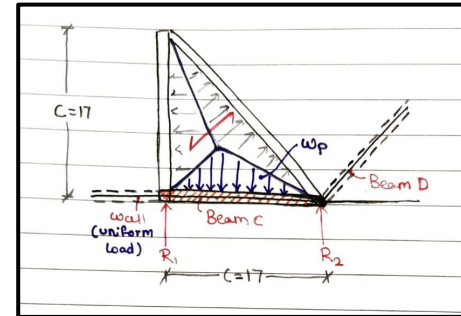 C=17
ωp
Beam D
wall
(uniform
load)
Beam C
R1
R2
C=17